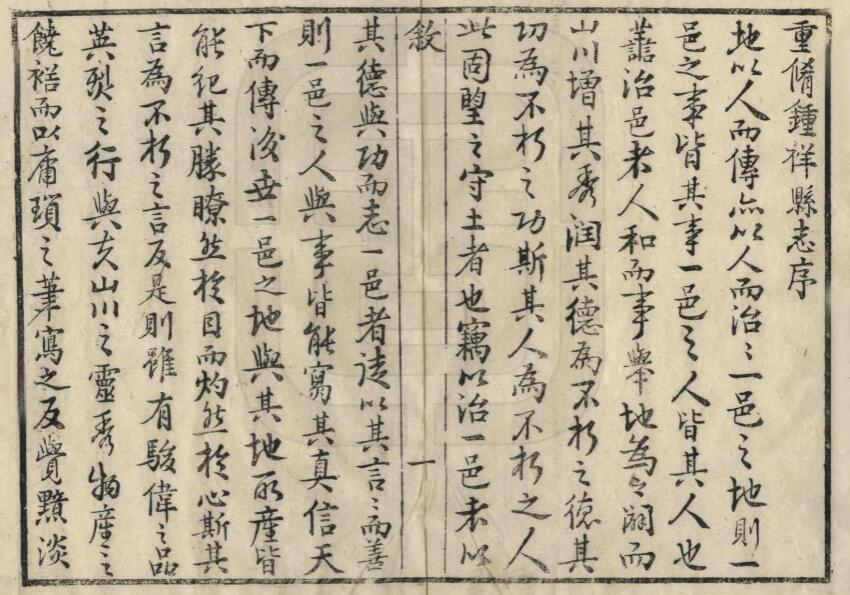 重脩鍾祥縣志序
地以人而傳亦以人而治〻一邑之地則一
邑之事皆其事一邑之人皆其人也
蓋治邑者人和而事舉地為之闢而
山川增其秀潤其德為不朽之德其
功為不朽之功斯其人為不朽之人
此固望之守土者也竊以治一邑者以
敘
一
其德與功而志一邑者徒以其言〻而善
則一邑之人與事皆能寫其真信天
下而傳後世一邑之地與其地所產皆
能紀其勝瞭然於目而灼然於心斯其
言為不朽之言反是則雖有駿偉之品
英烈之行與夫山川之靈秀物產之
饒裕而以庸瑣之筆寫之反覺黯淡